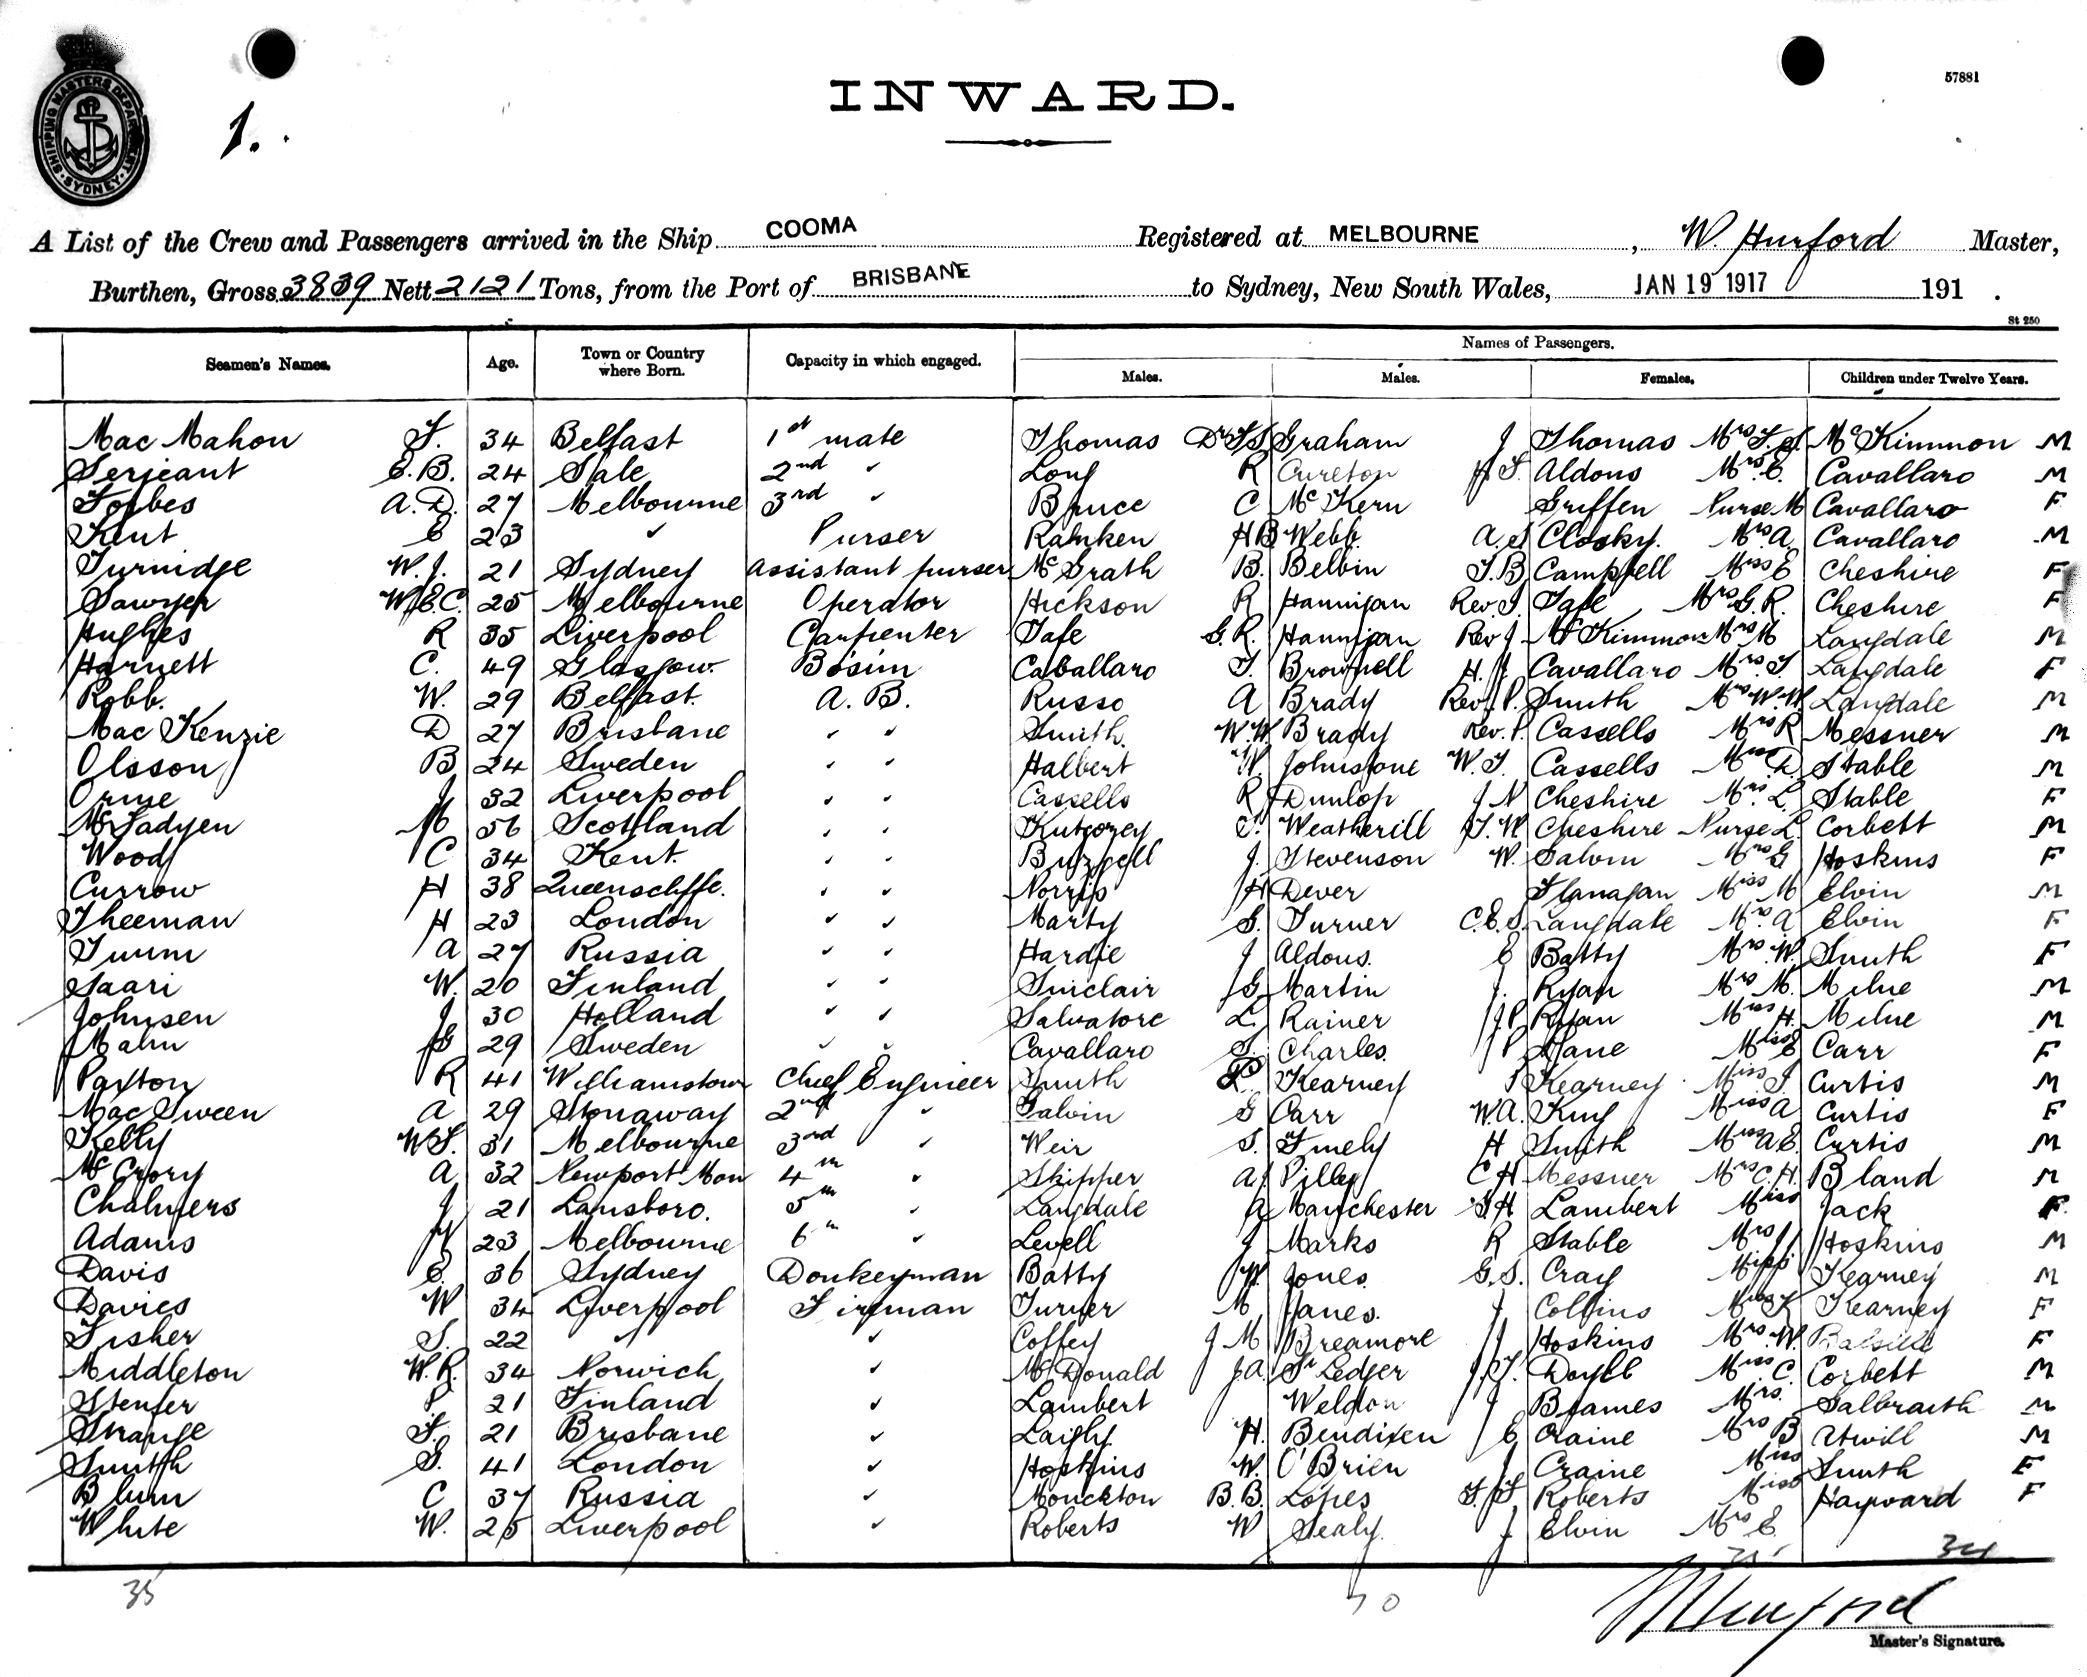 SHIPPING MASTERS DEPARTMENT · SYDNEY ·
1.
57881
INWARD.
A List of the Crew and Passengers arrived in the Ship COOMA Registered at MELBOURNE, W. Hurford Master,
Burthen, Gross 3839 Nett 2121 Tons, from the Port of BRISBANE to Sydney, New South Wales, JAN 19 1917 191 .
St 250
Seamen's Names. Age. Town or Country where Born. Capacity in which engaged. Names of Passengers.
Males. Males. Females. Children under Twelve Years.
Mac Mahon F. 34 Belfast 1st mate Thomas Graham J Thomas Mrs McKimmon M
Serjeant E.B. 24 Sale 2nd " Long R Cureton Aldous Mrs. E. Cavallaro M
Forbes A.D. 27 Melbourne 3rd " Bruce C McKern Griffen Nurse M Cavallaro F
Kent E 23 " Purser Rahken HB Webb. A.S Closky. Mrs A. Cavallaro M
Turnidge W.J. 21 Sydney Assistant purser McGrath B. Belbin F.B Campbell Miss E Cheshire F
Sawyer W.E.C. 25 Melbourne Operator Hickson R Hannigan Rev. Tafe Mrs G.R. Cheshire F
Hughes R 35 Liverpool Carpenter Tafe G.R. Hannigan Rev J McKimmon Mrs M Langdale M
Harnett C. 49 Glasgow. Bosun Caballaro S. Brownell H. Cavallaro Mrs. S Langdale F
Robb. W. 29 Belfast. A.B. Russo A Brady Rev. P. Smith Mrs W.W Langdale M
Mac Kenzie D 27 Brisbane " " Smith. W.W. Brady Rev. P. Cassells Mrs R Messner M
Olsson B 24 Sweden " " Halbert W. Johnstone W.T. Cassells Miss D. Stable M
Orme J 32 Liverpool " " Cassells R Dunlop J N Cheshire Mrs. L. Stable F
McFadyen M 56 Scotland " " Weatherill T.W. Cheshire Nurse L. Corbett M
Wood C 34 Kent. " " J. Stevenson W. Galvin Mrs G Hoskins F
Currow H 38 Queenscliffe. " " Norris H Dever Flanagan Miss M Elvin M
Theeman H 23 London " " Marty G. Turner C.E.S. Langdale Mrs. A Elvin F
Tumm A 27 Russia " " Hardie J Aldous. E Batty Mrs. W. Smith F
Saari W. 20 Finland " " Sinclair G. Martin J. Ryan Mrs M. Milne M
Johnsen J 30 Holland " " Salvatore L. Rainer J.P. Ryan Miss H. Milne M
Malm G 29 Sweden " " Cavallaro S. Charles. P Miss E Carr F
Paxton R 41 Williamstown Chief Engineer Smith L. Kearney Kearney Miss Curtis M
Mac Sween A 29 Stonaway 2nd " Galvin G Carr W.A. King Miss A Curtis F
Kelly W.S. 31 Melbourne 3rd " Weir S. Finely H Smith Miss A E. Curtis M
McCrory A 32 Newport Mon 4th " Skipper A. Pilley C H Messner Mrs C.H. Bland M
Chalmers J 21 Lansboro. 5th " Langdale A Manchester Lambert Miss Jack F
Adams 23 Melbourne 6th " Levell J Marks R Stable Mrs Hoskins M
Davis E. 36 Sydney Donkeyman Batty W. Jones. G.S. Cray Miss Kearney M
Davies W 34 Liverpool Fireman Turner M Janes. J Collins Kearney F
Fisher S. 22 " " Coffey J M Breamore J Hoskins Mrs. W. F
Middleton W.R. 34 Norwich " McDonald J.A. St Ledger J.T. Doyle Miss C. Corbett M
Stenfer P 21 Finland " Lambert Weldon J Brames Mrs. Galbraith M
Strange F. 21 Brisbane " H. Bendixen E Craine Mrs B Atwill M
Smith G. 41 London " Hoskins W. O'Brien J Craine Miss Smith F
Blum C 37 Russia " Monckton B.B. Lopes Roberts Miss Hayward F
White W. 25 Liverpool " Roberts W Sealy. J Elvin Mrs E
35 70 35 34
W Hurford
Master's Signature.